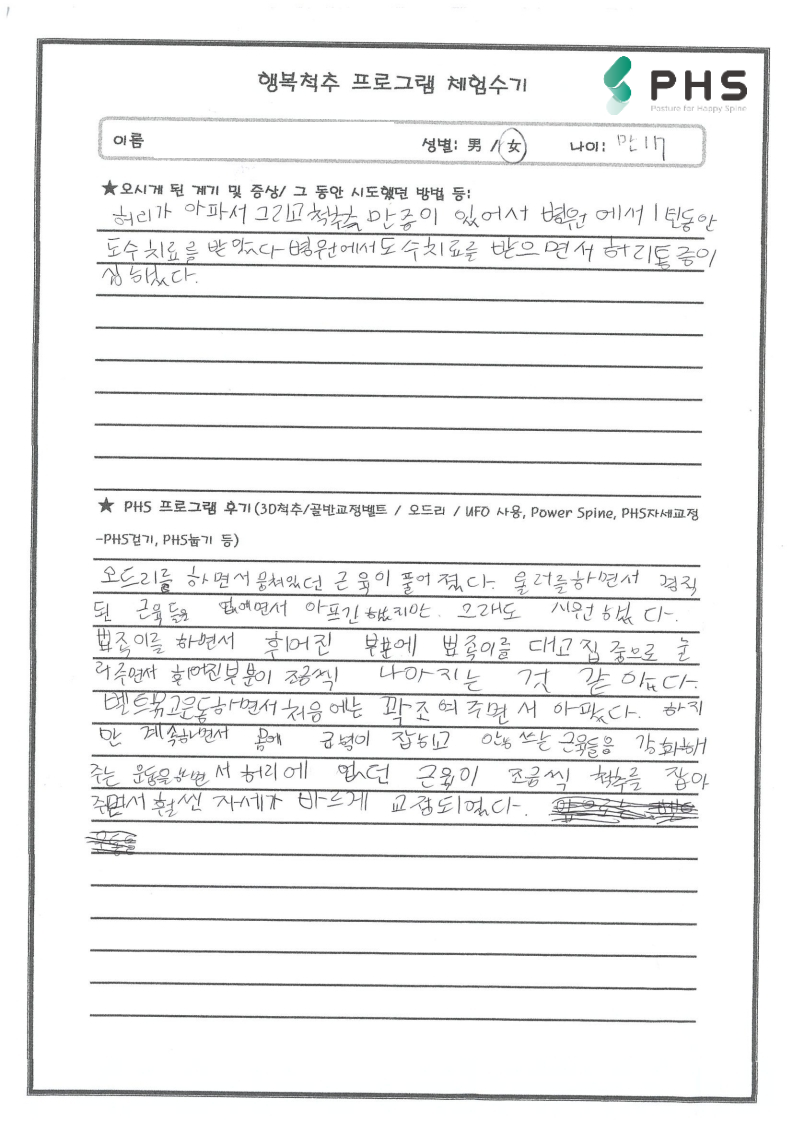 행복척추 프로그램 체험수기
PHS
Posture for Happy Spine
이름 성별: 男 / 女 나이: 만 17
★오시게 된 계기 및 증상/ 그 동안 시도했던 방법 등:
허리가 아파서 그리고 척추측만증이 있어서 병원에서 1년동안
도수치료를 받았다 병원에서 도수치료를 받으면서 허리통증이
심했다.
★ PHS 프로그램 후기(3D척추/골반교정벨트 / 오드리 / UFO 사용, Power Spine, PHS자세교정
-PHS걷기, PHS눕기 등)
오드리를 하면서 뭉쳐있던 근육이 풀어졌다. 울러를하면서 경직
된 근육들을 아프긴했지만. 그래도 시원했다.
하면서 휘어진 부분에 대고 집중으로 눌
러주면서 휘어진부분이 조금씩 나아지는 것 같았다.
벨트묶고운동하면서 처음에는 꽉조여주면서 아팠다. 하지
만 계속하면서 몸에 균형이 잡히고 안쓰는 근육들을 강화해
주는 운동을하면서 허리에 없던 근육이 조금씩 척추를 잡아
주면서 훨씬 자세가 바르게 교정되었다.